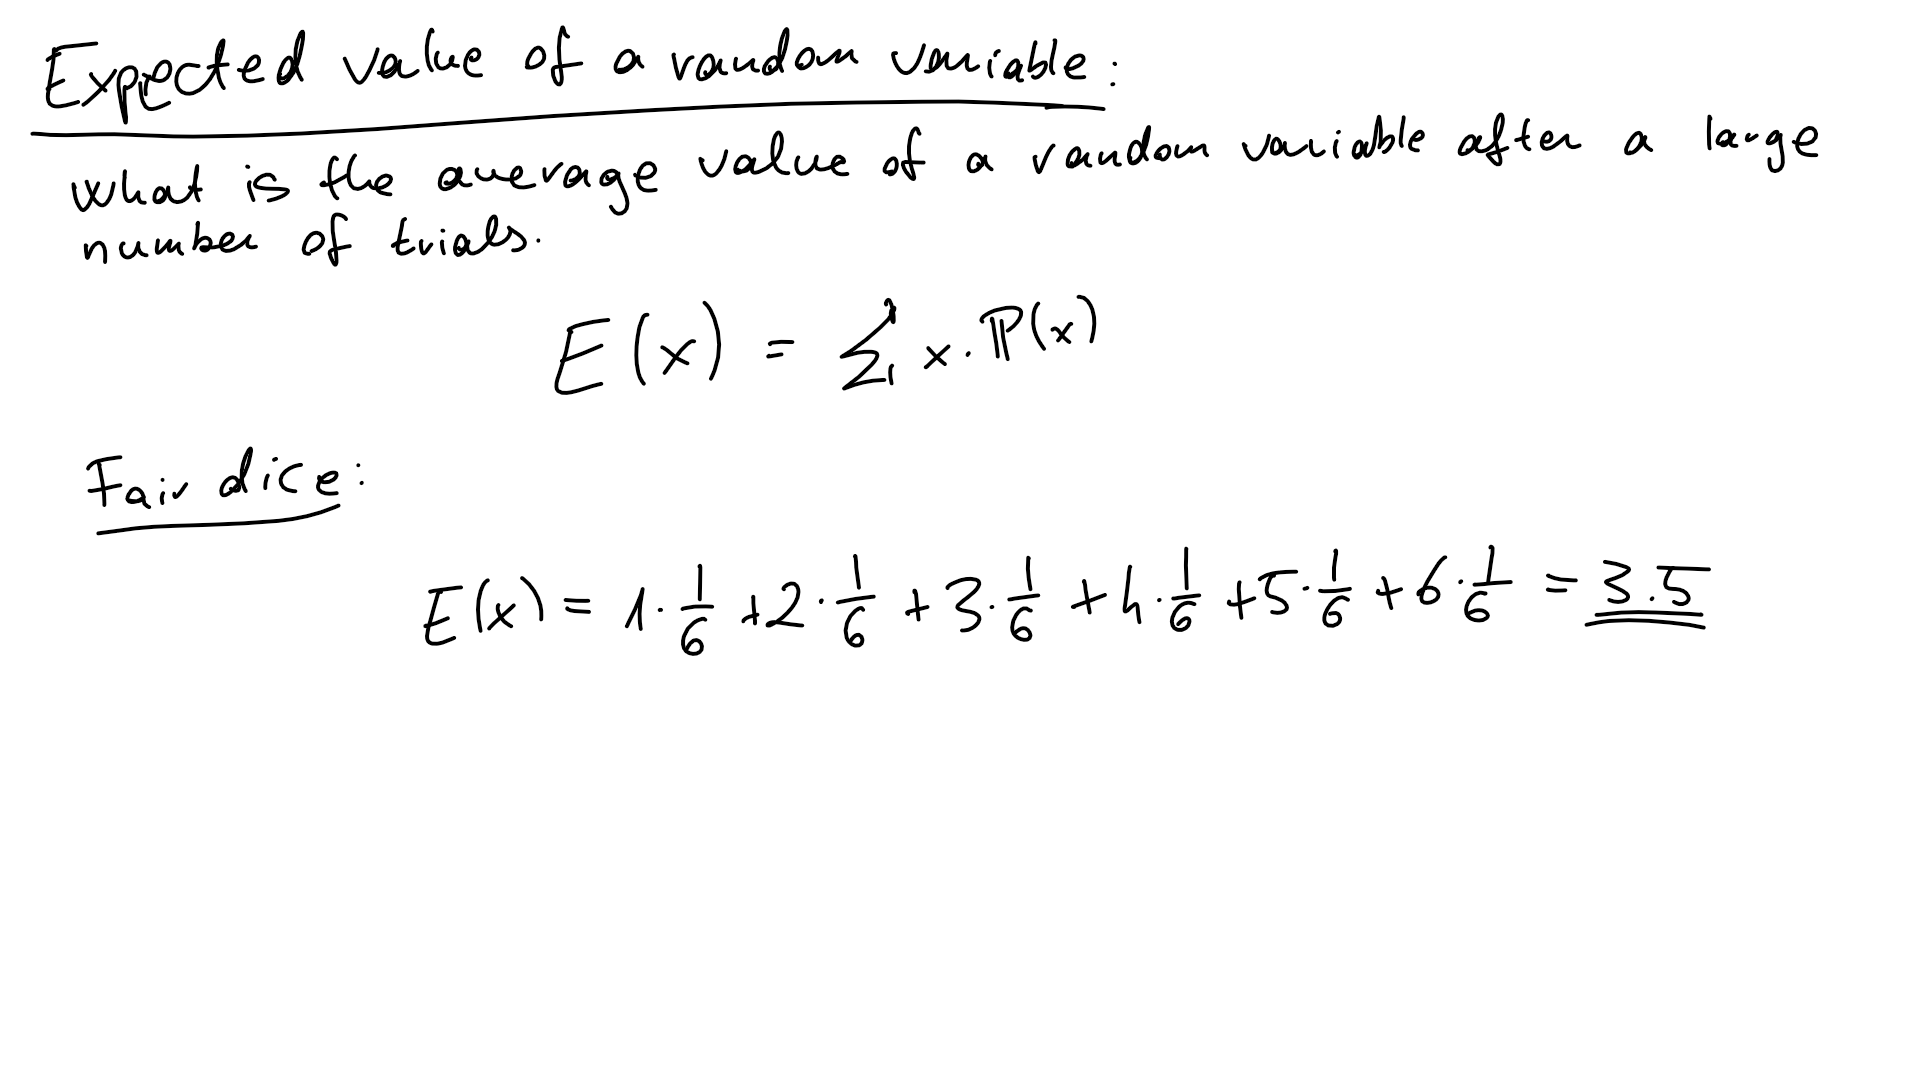 Expected value of a random variable:
what is the average value of a random variable after a large
number of trials.
E(x) = ∑ x · ℙ(x)
Fair dice:
E(x) = 1 · 1/6 + 2 · 1/6 + 3 · 1/6 + 4 · 1/6 + 5 · 1/6 + 6 · 1/6 = 3.5